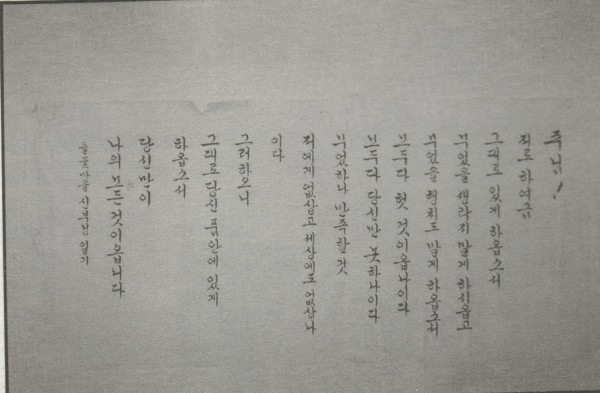 주님!
저로 하여금
그대로 있게 하옵소서
무엇을 생각지 말게 하시옵고
무엇을 행치도 말게 하옵소서
모두다 헛 것이옵나이다
모두다 당신만 못하나이다
무엇하나 만족할 것
저에게 없삽고 세상에도 없삽나
이다
그러하오니
그대로 당신 품안에 있게
하옵소서
당신만이
나의 모든것이옵니다